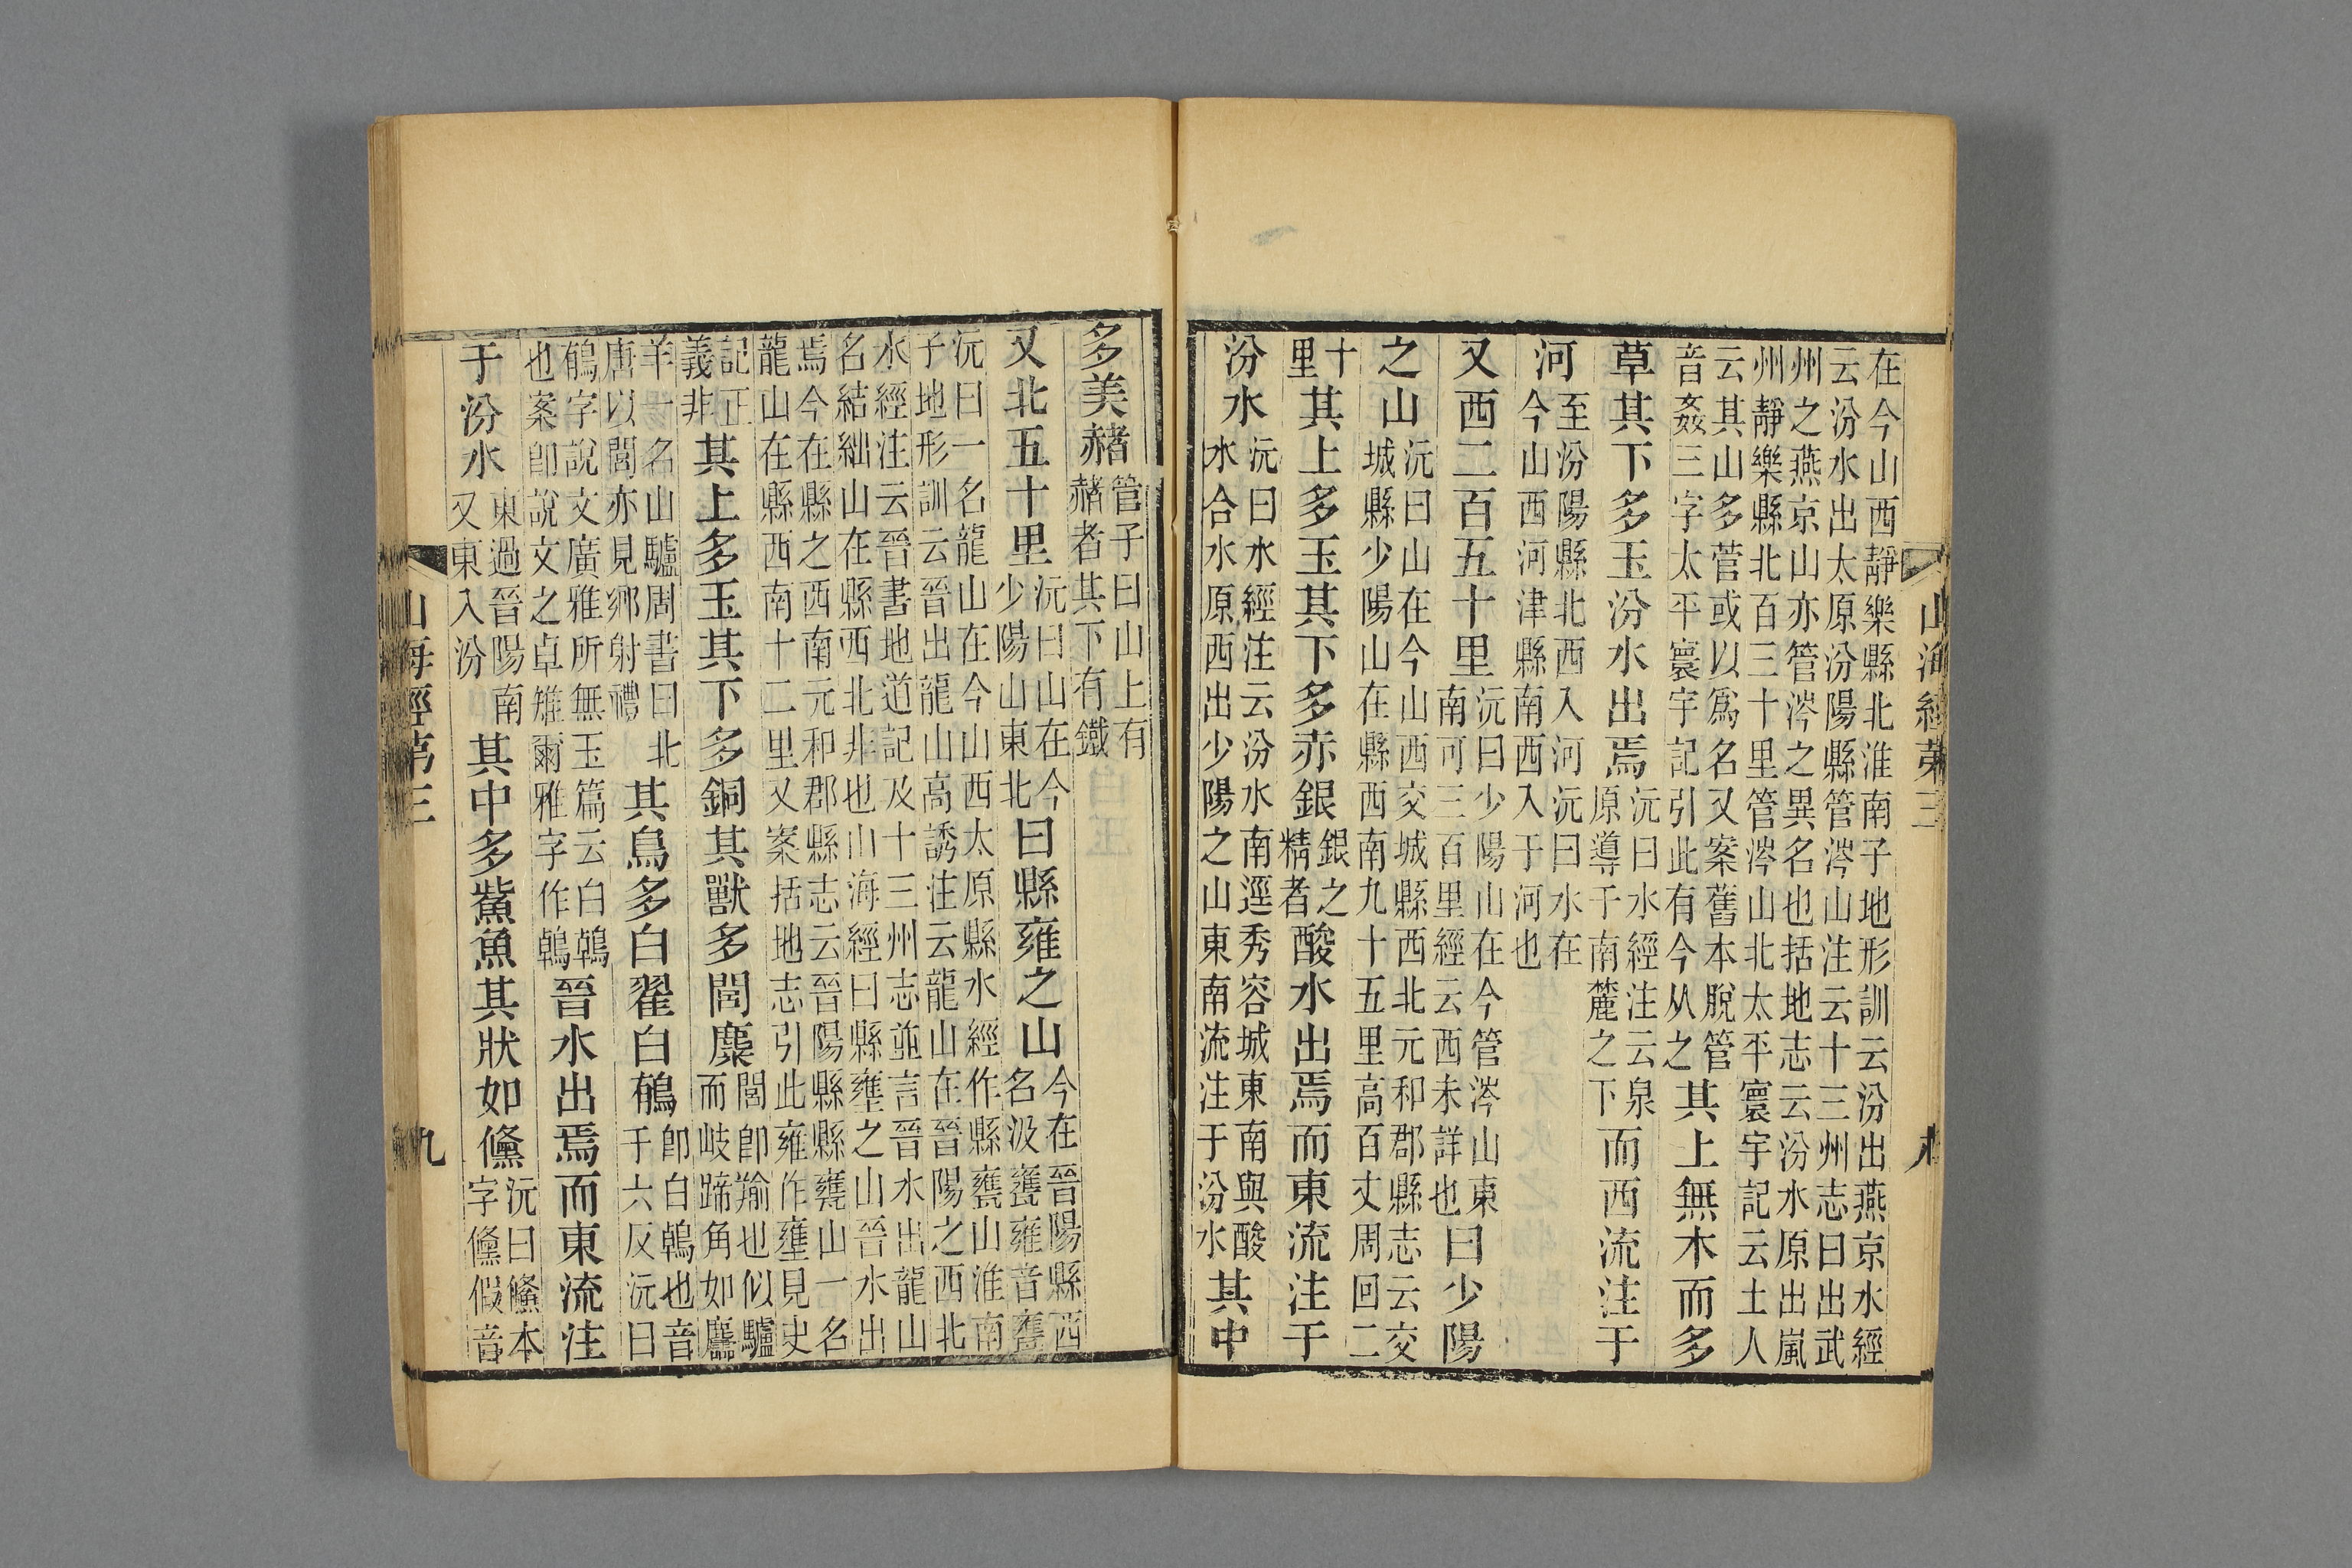 山海經第三 九
在今山西靜樂縣北淮南子地形訓云汾出燕京水經
云汾水出太原汾陽縣管涔山注云十三州志曰出武
州之燕京山亦管涔之異名也括地志云汾水原出嵐
州靜樂縣北百三十里管涔山北太平寰宇記云土人
云其山多菅或以爲名又案舊本脫管
音姦三字太平寰宇記引此有今从之
其上無木而多
草其下多玉汾水出焉
沅曰水經注云泉
原導于南麓之下
而西流注于
河
至汾陽縣北西入河沅曰水在
今山西河津縣南西入于河也
又西二百五十里
沅曰少陽山在今管涔山東
南可三百里經云西未詳也
曰少陽
之山
沅曰山在今山西交城縣西北元和郡縣志云交
城縣少陽山在縣西南九十五里高百丈周回二
十
里
其上多玉其下多赤銀
銀之
精者
酸水出焉而東流注于
汾水
沅曰水經注云汾水南逕秀容城東南與酸
水合水原西出少陽之山東南流注于汾水
其中
多美赭
管子曰山上有
赭者其下有鐵
又北五十里
沅曰山在今
少陽山東北
曰縣雍之山
今在晉陽縣西
名汲甕雍音甕
沅曰一名龍山在今山西太原縣水經作縣甕山淮南
子地形訓云晉出龍山高誘注云龍山在晉陽之西北
水經注云晉書地道記及十三州志竝言晉水出龍山
名結絀山在縣西北非也山海經曰縣壅之山晉水出
焉今在縣之西南元和郡縣志云晉陽縣縣甕山一名
龍山在縣西南十二里又案括地志引此雍作壅見史
記正
義非
其上多玉其下多銅其獸多閭麋
閭即羭也似驢
而岐蹄角如麢
羊一名山驢周書曰北
唐以閭亦見鄉射禮
其鳥多白翟白䳑
即白鵫也音
于六反沅曰
䳑字說文廣雅所無玉篇云白鵫
也案即說文之卓雉爾雅字作鵫
晉水出焉而東流注
于汾水
東過晉陽南
又東入汾
其中多鮆魚其狀如儵
沅曰鯈本
字儵假音
山海經第三
九